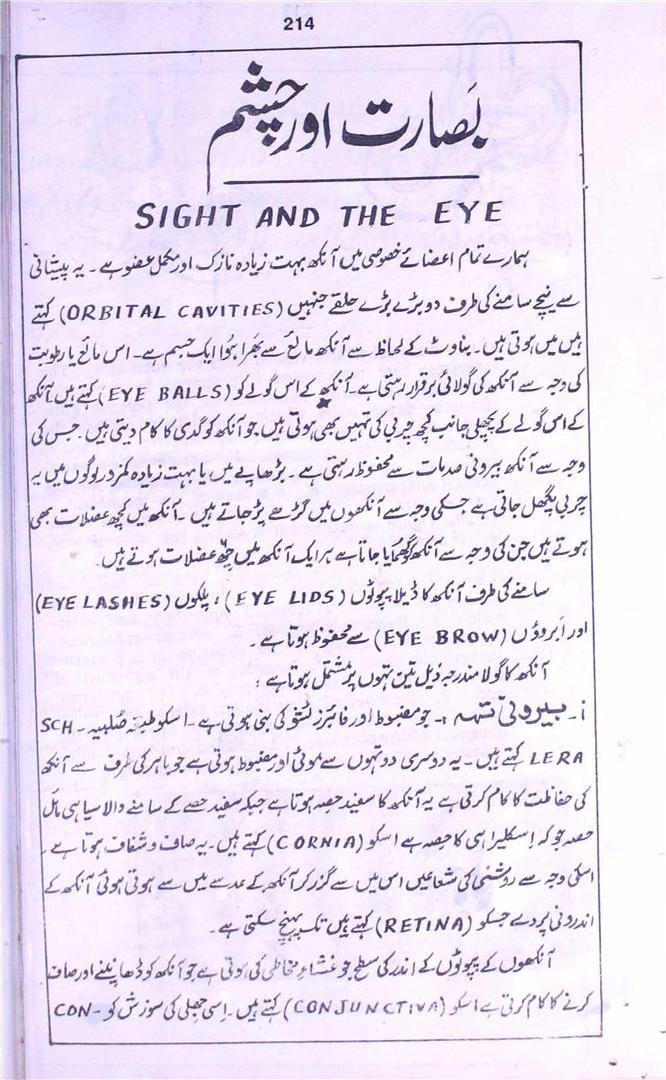 214
بَصارت اور چشم
SIGHT AND THE EYE
ہمارے تمام اعضائے خصوصی میں آنکھ بہت زیادہ نازک اور مکمل عضو ہے۔ یہ پیشانی
سے نیچے سامنے کی طرف دو بڑے بڑے حلقے جنہیں (ORBITAL CAVITIES) کہتے
ہیں میں ہوتی ہیں۔ بناوٹ کے لحاظ سے آنکھ مائع سے بھرا ہوُا ایک جسم ہے۔ اس مائع یا رطوبت
کی وجہ سے آنکھ کی گولائی برقرار رہتی ہے۔ آنکھ کے اس گولے کو (EYE BALLS) کہتے ہیں آنکھ
کے اس گولے کے پچھلی جانب کچھ چربی کی تہیں بھی ہوتی ہیں۔ جو آنکھ کو گدی کا کام دیتی ہیں۔ جس کی
وجہ سے آنکھ بیرونی صدمات سے محفوظ رہتی ہے۔ بڑھاپے میں یا بہت زیادہ کمزور لوگوں میں یہ
چربی پگھل جاتی ہے جسکی وجہ سے آنکھوں میں گڑھے پڑ جاتے ہیں۔ آنکھ میں کچھ عضلات بھی
ہوتے ہیں جن کی وجہ سے آنکھ کو گھمایا جاتا ہے ہر ایک آنکھ میں چھ عضلات ہوتے ہیں۔
سامنے کی طرف آنکھ کا ڈیلا پپوٹوں (EYE LIDS)، پلکوں (EYE LASHES)
اور اَبروؤں (EYE BROW) سے محفوظ ہوتا ہے۔
آنکھ کا گولا مندرجہ ذیل تین تہوں پر مشتمل ہوتا ہے:
i۔ بیرونی تہہ :۔ جو مضبوط اور فائبرز ٹشو کی بنی ہوتی ہے۔ اسکو طبقہ صُلبیہ۔ SCH
LERA کہتے ہیں۔ یہ دوسری دو تہوں سے موٹی اور مضبوط ہوتی ہے جو باہر کی طرف سے آنکھ
کی حفاظت کا کام کرتی ہے یہ آنکھ کا سفید حصہ ہوتا ہے جبکہ سفید حصے کے سامنے والا سیاہی مائل
حصہ جو کہ اِسکلیرا ہی کا حصہ ہے اسکو (CORNIA) کہتے ہیں۔ یہ صاف و شفاف ہوتا ہے۔
اسکی وجہ سے روشنی کی شعاعیں اس میں سے گزر کر آنکھ کے عدسے میں سے ہوتی ہوئی آنکھ کے
اندرونی پردے جسکو (RETINA) کہتے ہیں تک پہنچ سکتی ہے۔
آنکھوں کے پپوٹوں کے اندر کی سطح جو غشاءِ مخاطی کی ہوتی ہے جو آنکھ کو ڈھاپنے اور صاف
کرنے کا کام کرتی ہے اسکو (CONJUNCTIVA) کہتے ہیں۔ اِسی جھلی کی سوزش کو CON-